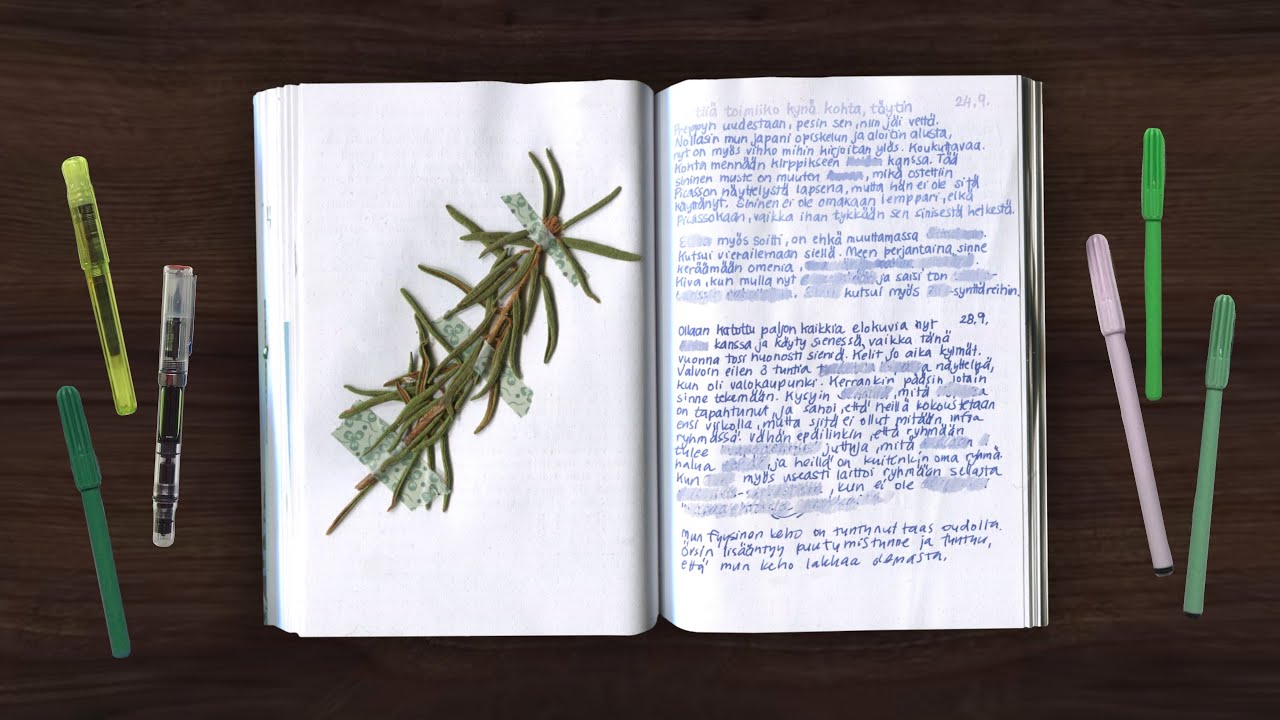 tiiä toimiiko kynä kohta, täytin 24.9.
Preppyn uudestaan, pesin sen, niin jäi vettä.
Nollasin mun japani opiskelun ja aloitin alusta,
nyt on myös vihko mihin kirjoitan ylös. Koukuttavaa.
Kohta mennään kirppikseen kanssa. Tää
sininen muste on muuten , mikä ostettiin
Picasson näyttelystä lapsena, mutta hän ei ole sitä
käyttänyt. Sininen ei ole omakaan lemppari, eikä
Picassokaan, vaikka ihan tykkään sen sinisestä hetkestä.
myös soitti, on ehkä muuttamassa
Kutsui vierailemaan siellä. Meen perjantaina sinne
keräämään omenia,
Kiva, kun mulla nyt ja saisi ton
kutsui myös -synttäreihin.
Ollaan katottu paljon kaikkia elokuvia nyt 28.9.
kanssa ja käyty sienessä, vaikka tänä
vuonna tosi huonosti sieniä. Kelit jo aika kylmät.
Valvoin eilen 3 tuntia näyttelyä,
kun oli valokaupunki. Kerrankin pääsin jotain
sinne tekemään. Kysyin , mitä
on tapahtunut, ja sanoi, että heillä kokoustetaan
ensi viikolla, mutta siitä ei ollut mitään infra
ryhmässä. Vähän epäilinkin, että ryhmään
tulee juttuja, mitä
halua , ja heillä on kuitenkin oma ryhmä.
Kun myös useasti laittoi ryhmään sellasta
, kun ei ole
Mun fyysinen keho on tuntunut taas oudolla.
Örsin lisääntyy puutumistunne ja tuntuu,
että mun keho lakkaa olemasta.